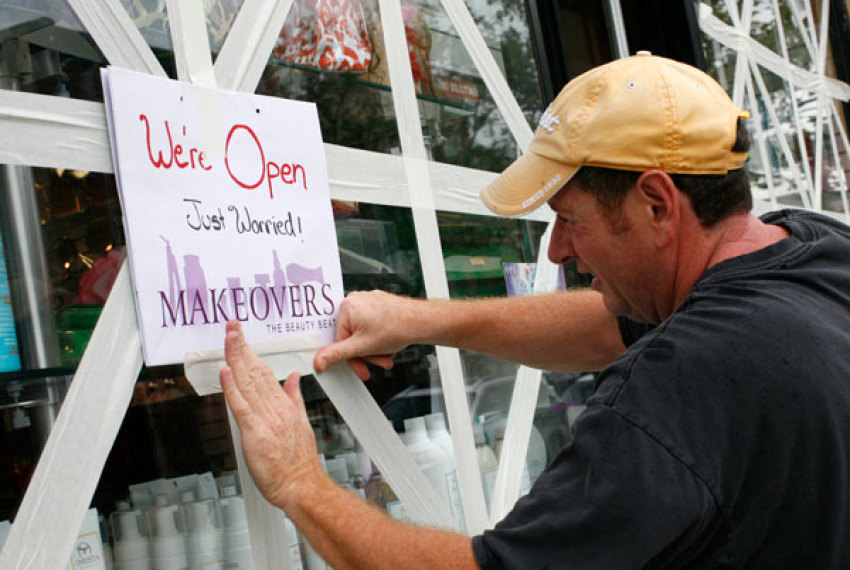 We're Open
Just Worried!
MAKEOVERS
THE BEAUTY BEAT